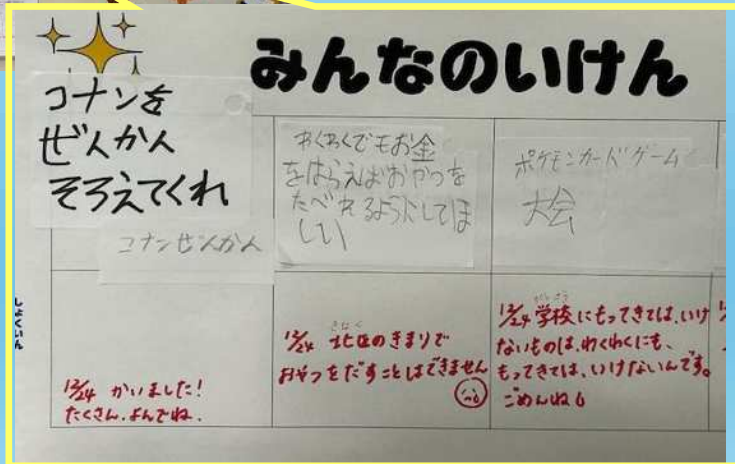 みんなのいけん
コナンを
ぜんかん
そろえてくれ
コナンぜんかん
わくわくでもお金
をはらえばおやつを
たべれるようにしてほ
しい
ポケモンカードゲーム
大会
しょくいん
12/24 かいました!
たくさん、よんでね。
きたく
12/24 北区のきまりで
おやつをだすことはできません
がっこう
12/24 学校にもってきては、いけ
ないものは、わくわくにも、
もってきては、いけないんです。
ごめんね